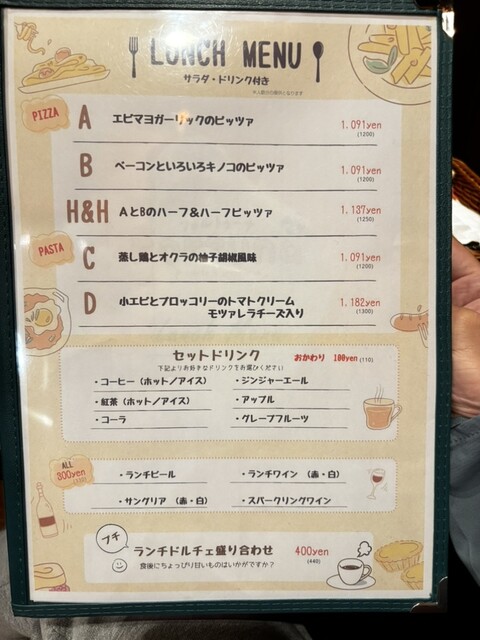 LUNCH MENU
サラダ・ドリンク付き
PIZZA
A エビマヨガーリックのピッツァ 1.091yen
(1200)
B ベーコンといろいろキノコのピッツァ 1.091yen
(1200)
H&H AとBのハーフ&ハーフピッツァ 1.137yen
(1250)
PASTA
C 蒸し鶏とオクラの柚子胡椒風味 1.091yen
(1200)
D 小エビとブロッコリーのトマトクリーム 1.182yen
モツァレラチーズ入り (1300)
セットドリンク おかわり 100yen (110)
下記よりお好きなドリンクをお選びください
・コーヒー (ホット/アイス) ・ジンジャーエール
・紅茶 (ホット/アイス) ・アップル
・コーラ ・グレープフルーツ
ALL
300yen
・ランチビール ・ランチワイン (赤・白)
・サングリア (赤・白) ・スパークリングワイン
プチ
ランチドルチェ盛り合わせ 400yen
食後にちょっぴり甘いものはいかがですか? (440)